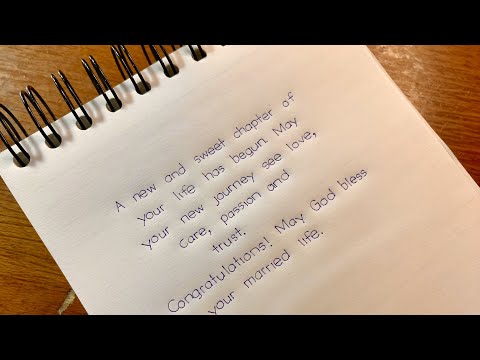 A new and sweet chapter of
your life has begun. May
your new journey see love,
care, passion and
trust.
Congratulations! May God bless
your married life.